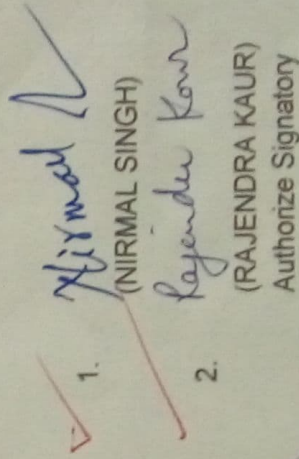 1. Nirmal S
(NIRMAL SINGH)
Rajender Kour
2.
(RAJENDRA KAUR)
Authorize Signatory